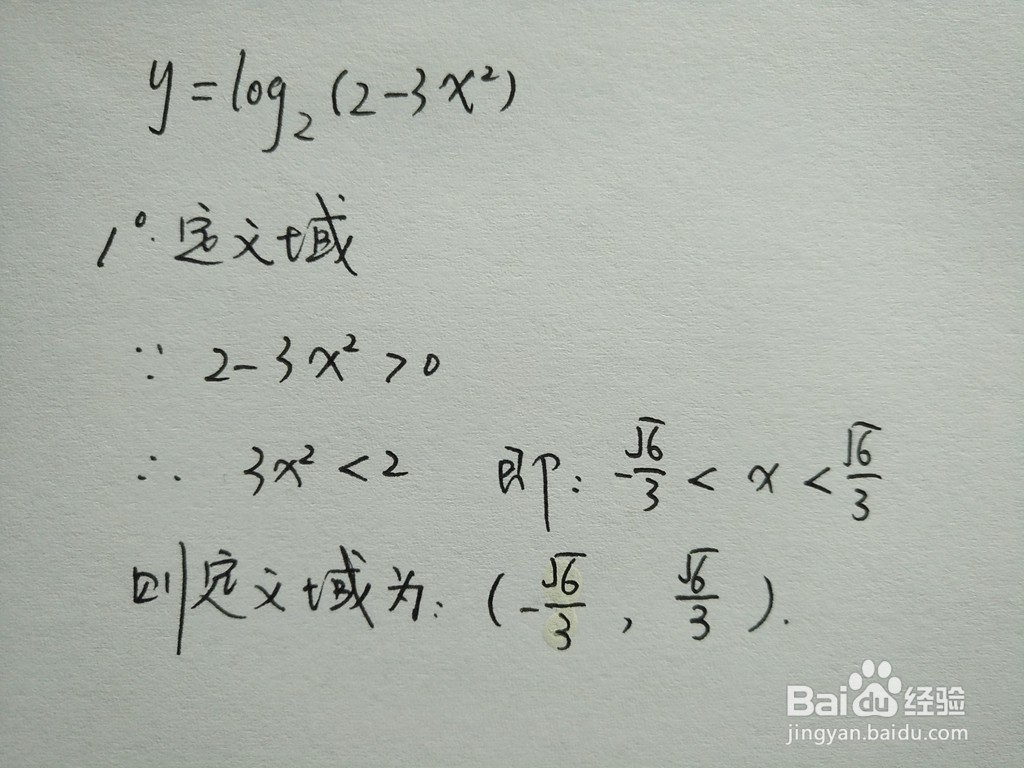 y=log₂(2-3x²)
1°.定义域
∵ 2-3x²>0
∴ 3x²<2 即: -√6/3 < x < √6/3
则定义域为: (-√6/3, √6/3).
Baidu经验
jingyan.baidu.com